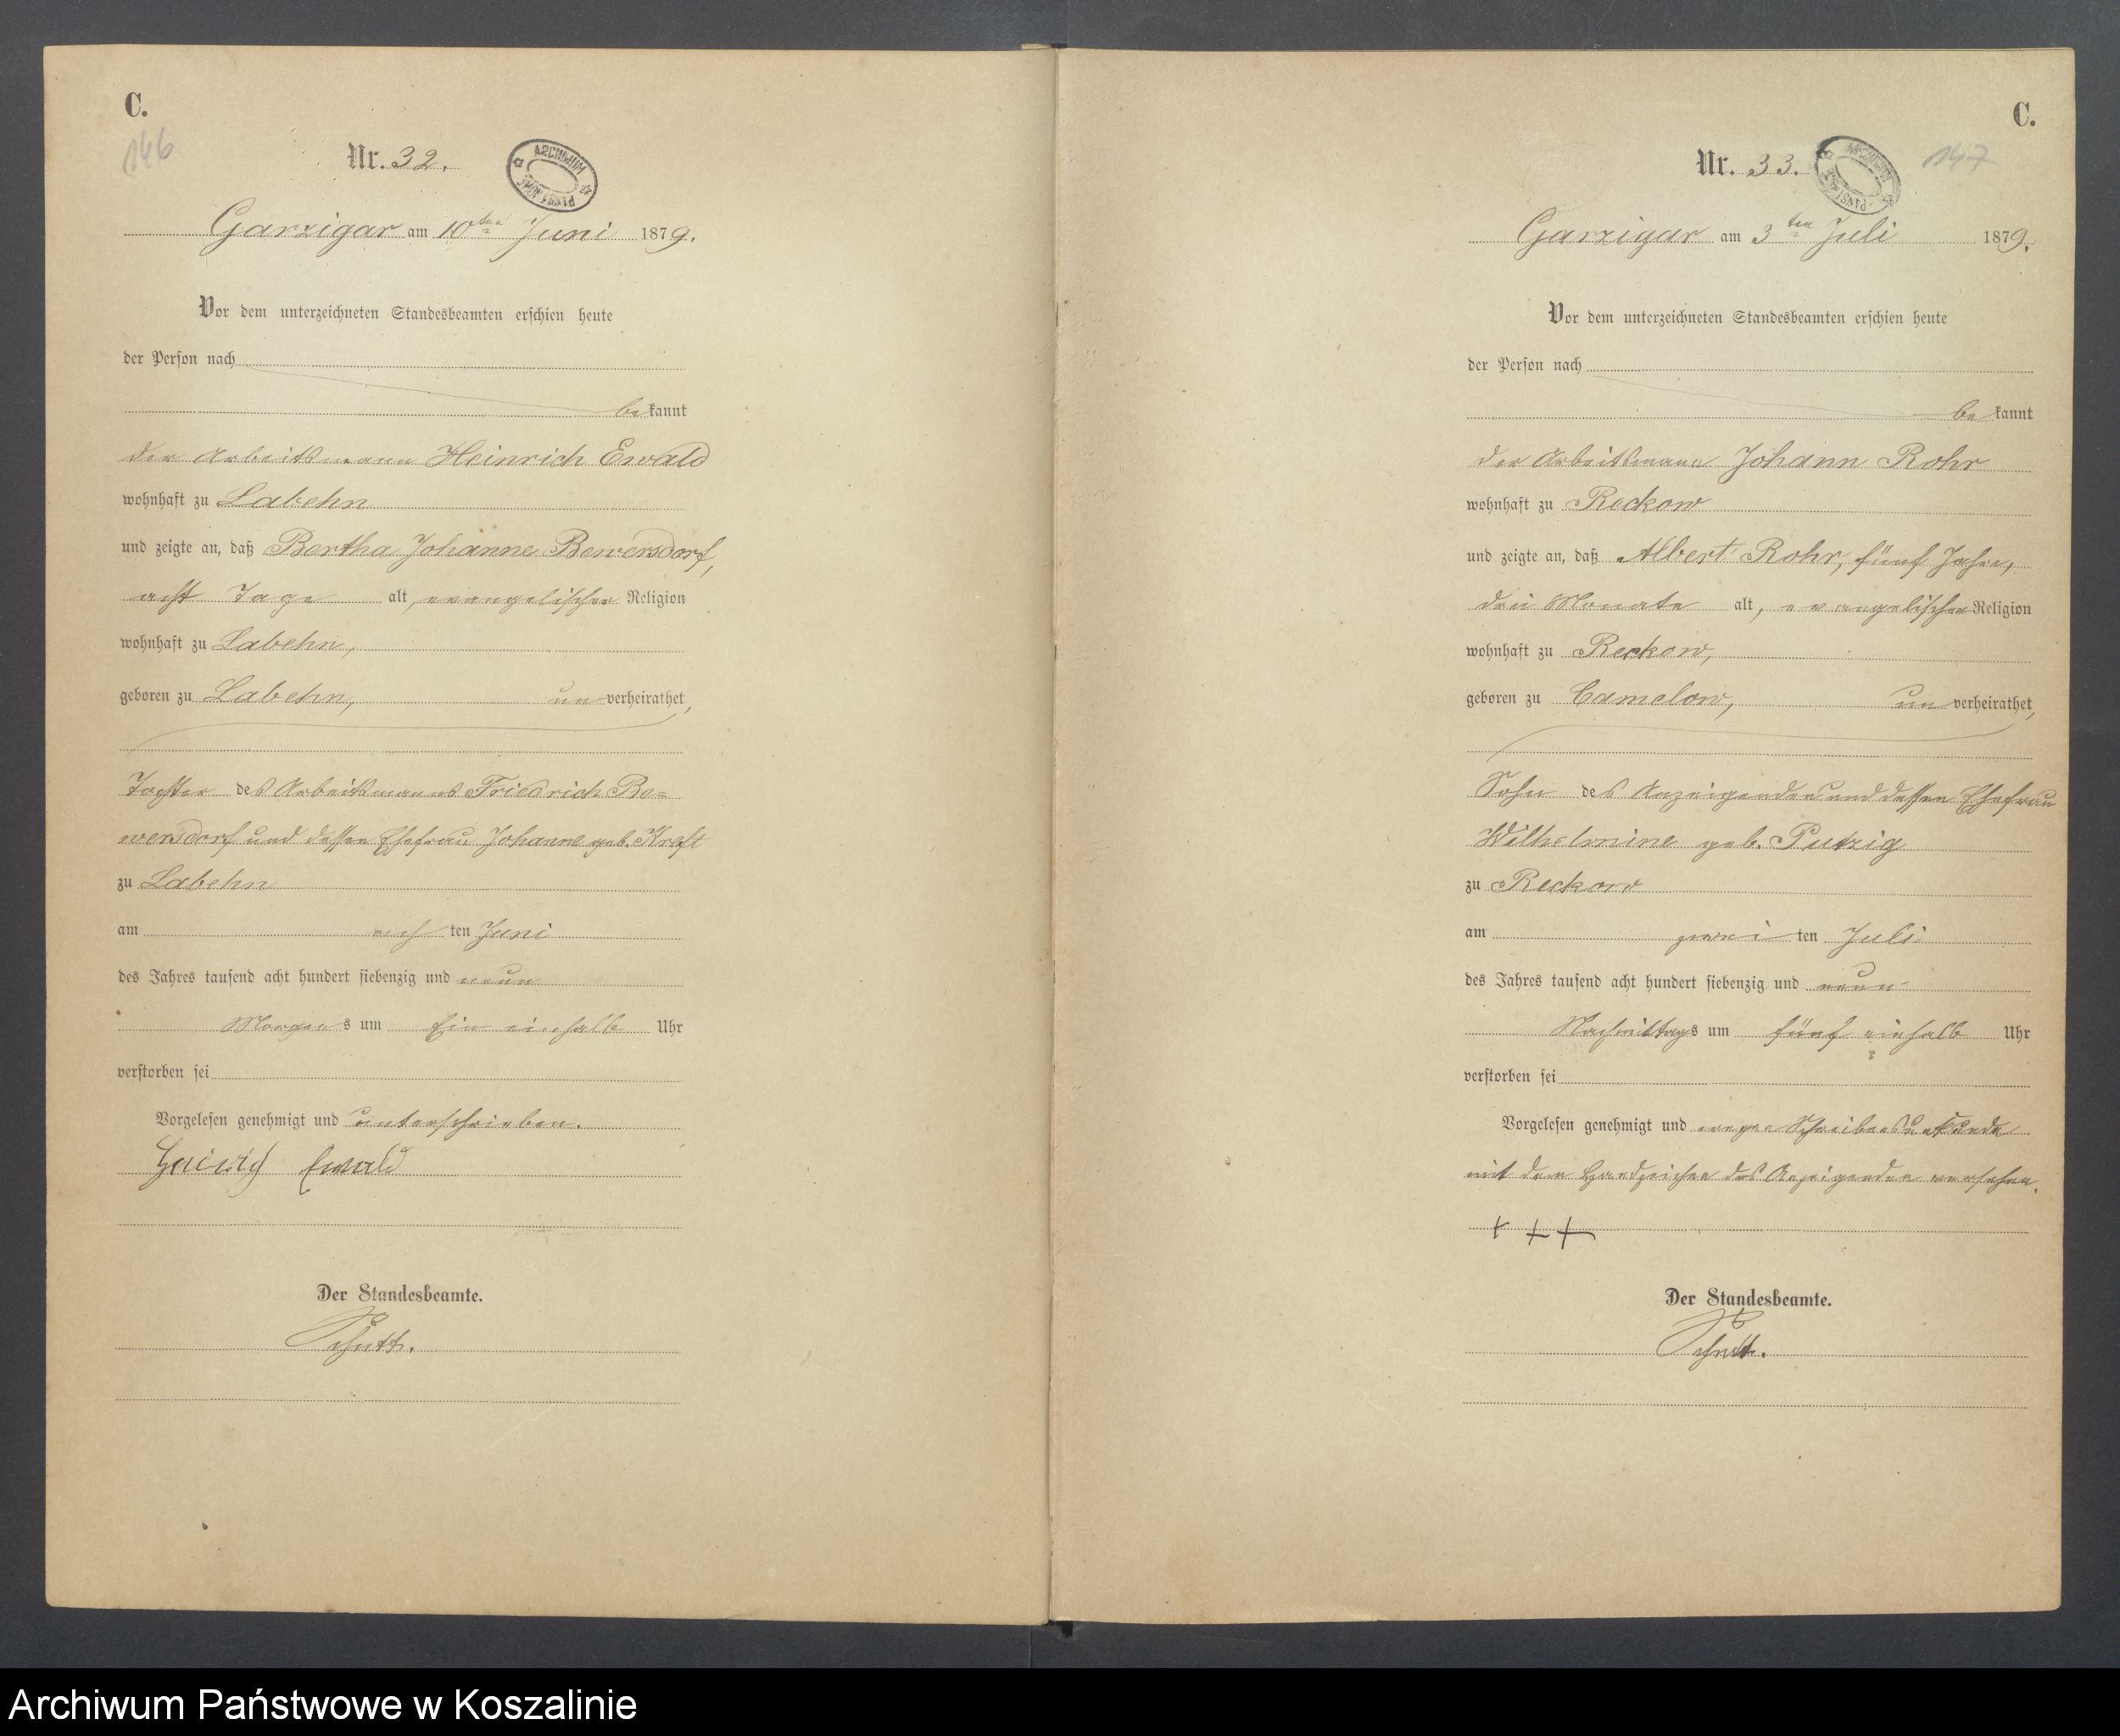 C.
146
Nr. 32.
ARCHIWUM PAŃSTWOWE
Garzigar am 10ten Juni 1879.
Vor dem unterzeichneten Standesbeamten erschien heute
der Person nach
bekannt
der Arbeitsmann Heinrich Ewald
wohnhaft zu Labehn
und zeigte an, daß Bertha Johanne Bewersdorf,
acht Tage alt, evangelischer Religion
wohnhaft zu Labehn,
geboren zu Labehn, unverheirathet,
Tochter des Arbeitsmannes Friedrich Be=
wersdorf und dessen Ehefrau Johanne geb. Kreft
zu Labehn
am achten Juni
des Jahres tausend acht hundert siebenzig und neun
Morgens um Ein einhalb Uhr
verstorben sei
Vorgelesen genehmigt und unterschrieben.
Heinrich Ewald
Der Standesbeamte.
C.
147
Nr. 33.
ARCHIWUM PAŃSTWOWE
Garzigar am 3ten Juli 1879.
Vor dem unterzeichneten Standesbeamten erschien heute
der Person nach
bekannt
der Arbeitsmann Johann Rohr
wohnhaft zu Reckow
und zeigte an, daß Albert Rohr, fünf Jahre,
drei Monate alt, evangelischer Religion
wohnhaft zu Reckow,
geboren zu Camelow, unverheirathet,
Sohn des Anzeigenden und dessen Ehefrau
Wilhelmine geb. Putzig
zu Reckow
am zweiten Juli
des Jahres tausend acht hundert siebenzig und neun
Nachmittags um fünf einhalb Uhr
verstorben sei
Vorgelesen genehmigt und wegen Schreibensunkunde
mit dem Handzeichen des Anzeigenden versehen.
+ + +
Der Standesbeamte.
Archiwum Państwowe w Koszalinie